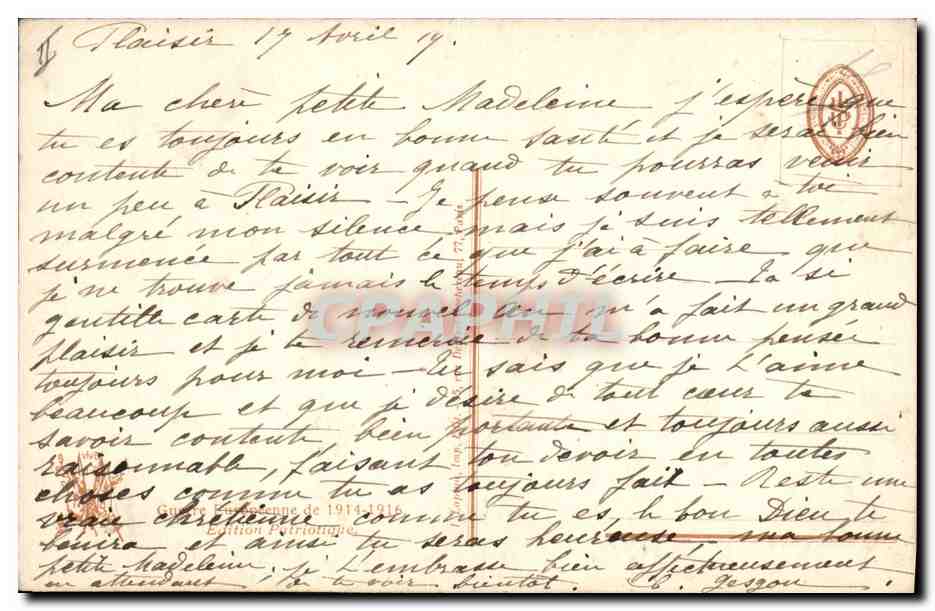 Plaisir 17 Avril 19.
Ma chère petite Madeleine j'espère que
tu es toujours en bonne santé et je serai bien
contente de te voir quand tu pourras venir
un peu à Plaisir – Je pense souvent à toi
malgré mon silence mais je suis tellement
surmenée par tout ce que j'ai à faire que
je ne trouve jamais le temps d'écrire – Ta si
gentille carte de nouvel an m'a fait un grand
plaisir et je te remercie de ta bonne pensée
toujours pour moi – Tu sais que je t'aime
beaucoup et que je désire de tout cœur te
savoir contente, bien portante et toujours aussi
raisonnable, faisant ton devoir en toutes
choses comme tu as toujours fait – Reste une
vraie chrétienne comme tu es, le bon Dieu te
bénira et ainsi tu seras heureuse, ma bonne
petite Madeleine, je t'embrasse bien affectueusement
en attendant de te voir bientôt.
Guerre Européenne de 1914-1916
Edition Patriotique
CPAPHIL